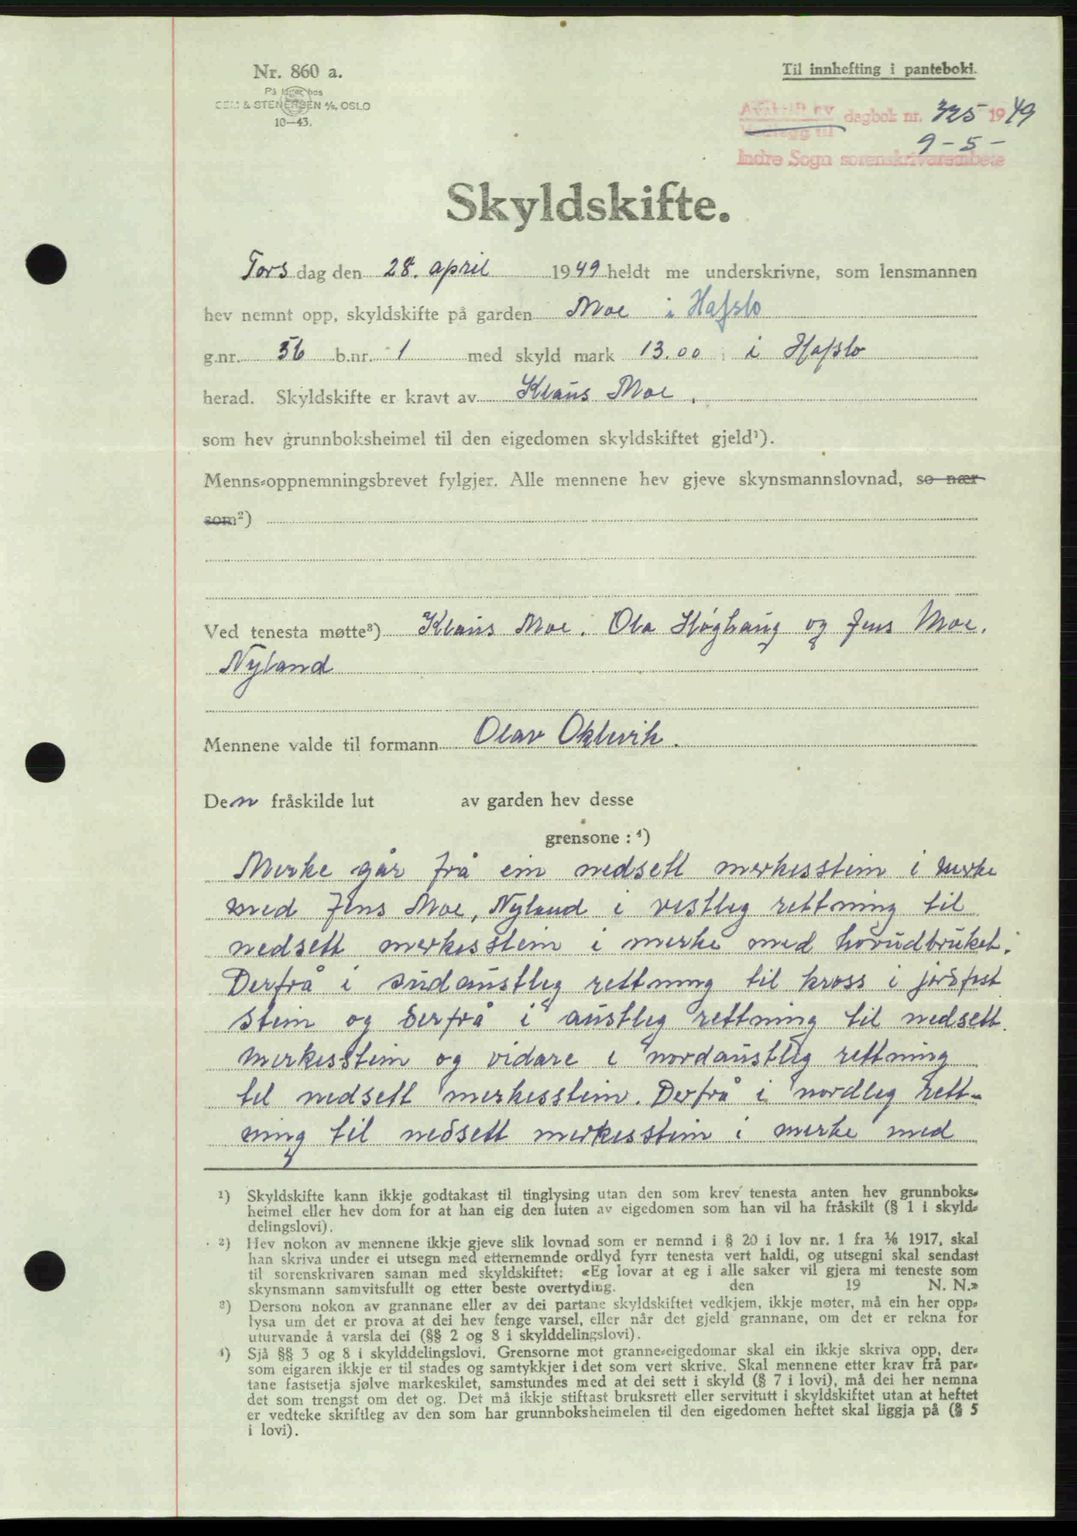 Nr. 860 a.
Til innhefting i panteboki.
På lager hos
SEM & STENERSEN A/S, OSLO
10—43.
dagbok nr. 325 1949
9 - 5 -
Indre Sogn sorenskrivarembete
Skyldskifte.
Tors dag den 28. april 1949 heldt me underskrivne, som lensmannen
hev nemnt opp, skyldskifte på garden Moe i Hafslo
g.nr. 56 b.nr. 1 med skyld mark 13.00 i Hafslo
herad. Skyldskifte er kravt av Klaus Moe.
som hev grunnboksheimel til den eigedomen skyldskiftet gjeld¹).
Menns-oppnemningsbrevet fylgjer. Alle mennene hev gjeve skynsmannslovnad, so nær
som²)
Ved tenesta møtte³) Klaus Moe. Ola Høghaug og Jens Moe.
Nyland
Mennene valde til formann Olav Oklevik.
Den fråskilde lut av garden hev desse
grensone : ⁴)
Merke går frå ein nedsett merkesstein i merke
med Jens Moe, Nyland i vestleg rettning til
nedsett merkesstein i merke med hovudbruket.
Derfrå i sudaustleg rettning til kross i jordfast
stein og derfrå i austleg rettning til nedsett
merkesstein og vidare i nordaustleg rettning
til nedsett merkesstein. Derfrå i nordleg rett-
ning til nedsett merkesstein i merke med
¹) Skyldskifte kann ikkje godtakast til tinglysing utan den som krev tenesta anten hev grunnboks-
heimel eller hev dom for at han eig den luten av eigedomen som han vil ha fråskilt (§ 1 i skyld-
delingslovi).
²) Hev nokon av mennene ikkje gjeve slik lovnad som er nemnd i § 20 i lov nr. 1 fra 1/6 1917, skal
han skriva under ei utsegn med etternemnde ordlyd fyrr tenesta vert haldi, og utsegni skal sendast
til sorenskrivaren saman med skyldskiftet: «Eg lovar at eg i alle saker vil gjera mi teneste som
skynsmann samvitsfullt og etter beste overtyding. den 19 N. N.»
³) Dersom nokon av grannane eller av dei partane skyldskiftet vedkjem, ikkje møter, må ein her opp-
lysa um det er prova at dei hev fenge varsel, eller når det gjeld grannane, om det er rekna for
uturvande å varsla dei (§§ 2 og 8 i skylddelingslovi).
⁴) Sjå §§ 3 og 8 i skylddelingslovi. Grensorne mot granne-eigedomar skal ein ikkje skriva opp, der-
som eigaren ikkje er til stades og samtykkjer i det som vert skrive. Skal mennene etter krav frå par-
tane fastsetja sjølve markeskilet, samstundes med at dei sett i skyld (§ 7 i lovi), må dei her nemna
det som trengst om det og. Det må ikkje stiftast bruksrett eller servitutt i skyldskiftet utan at heftet
er vedteke skriftleg av den som har grunnboksheimelen til den eigedomen heftet skal liggja på (§ 5
i lovi).